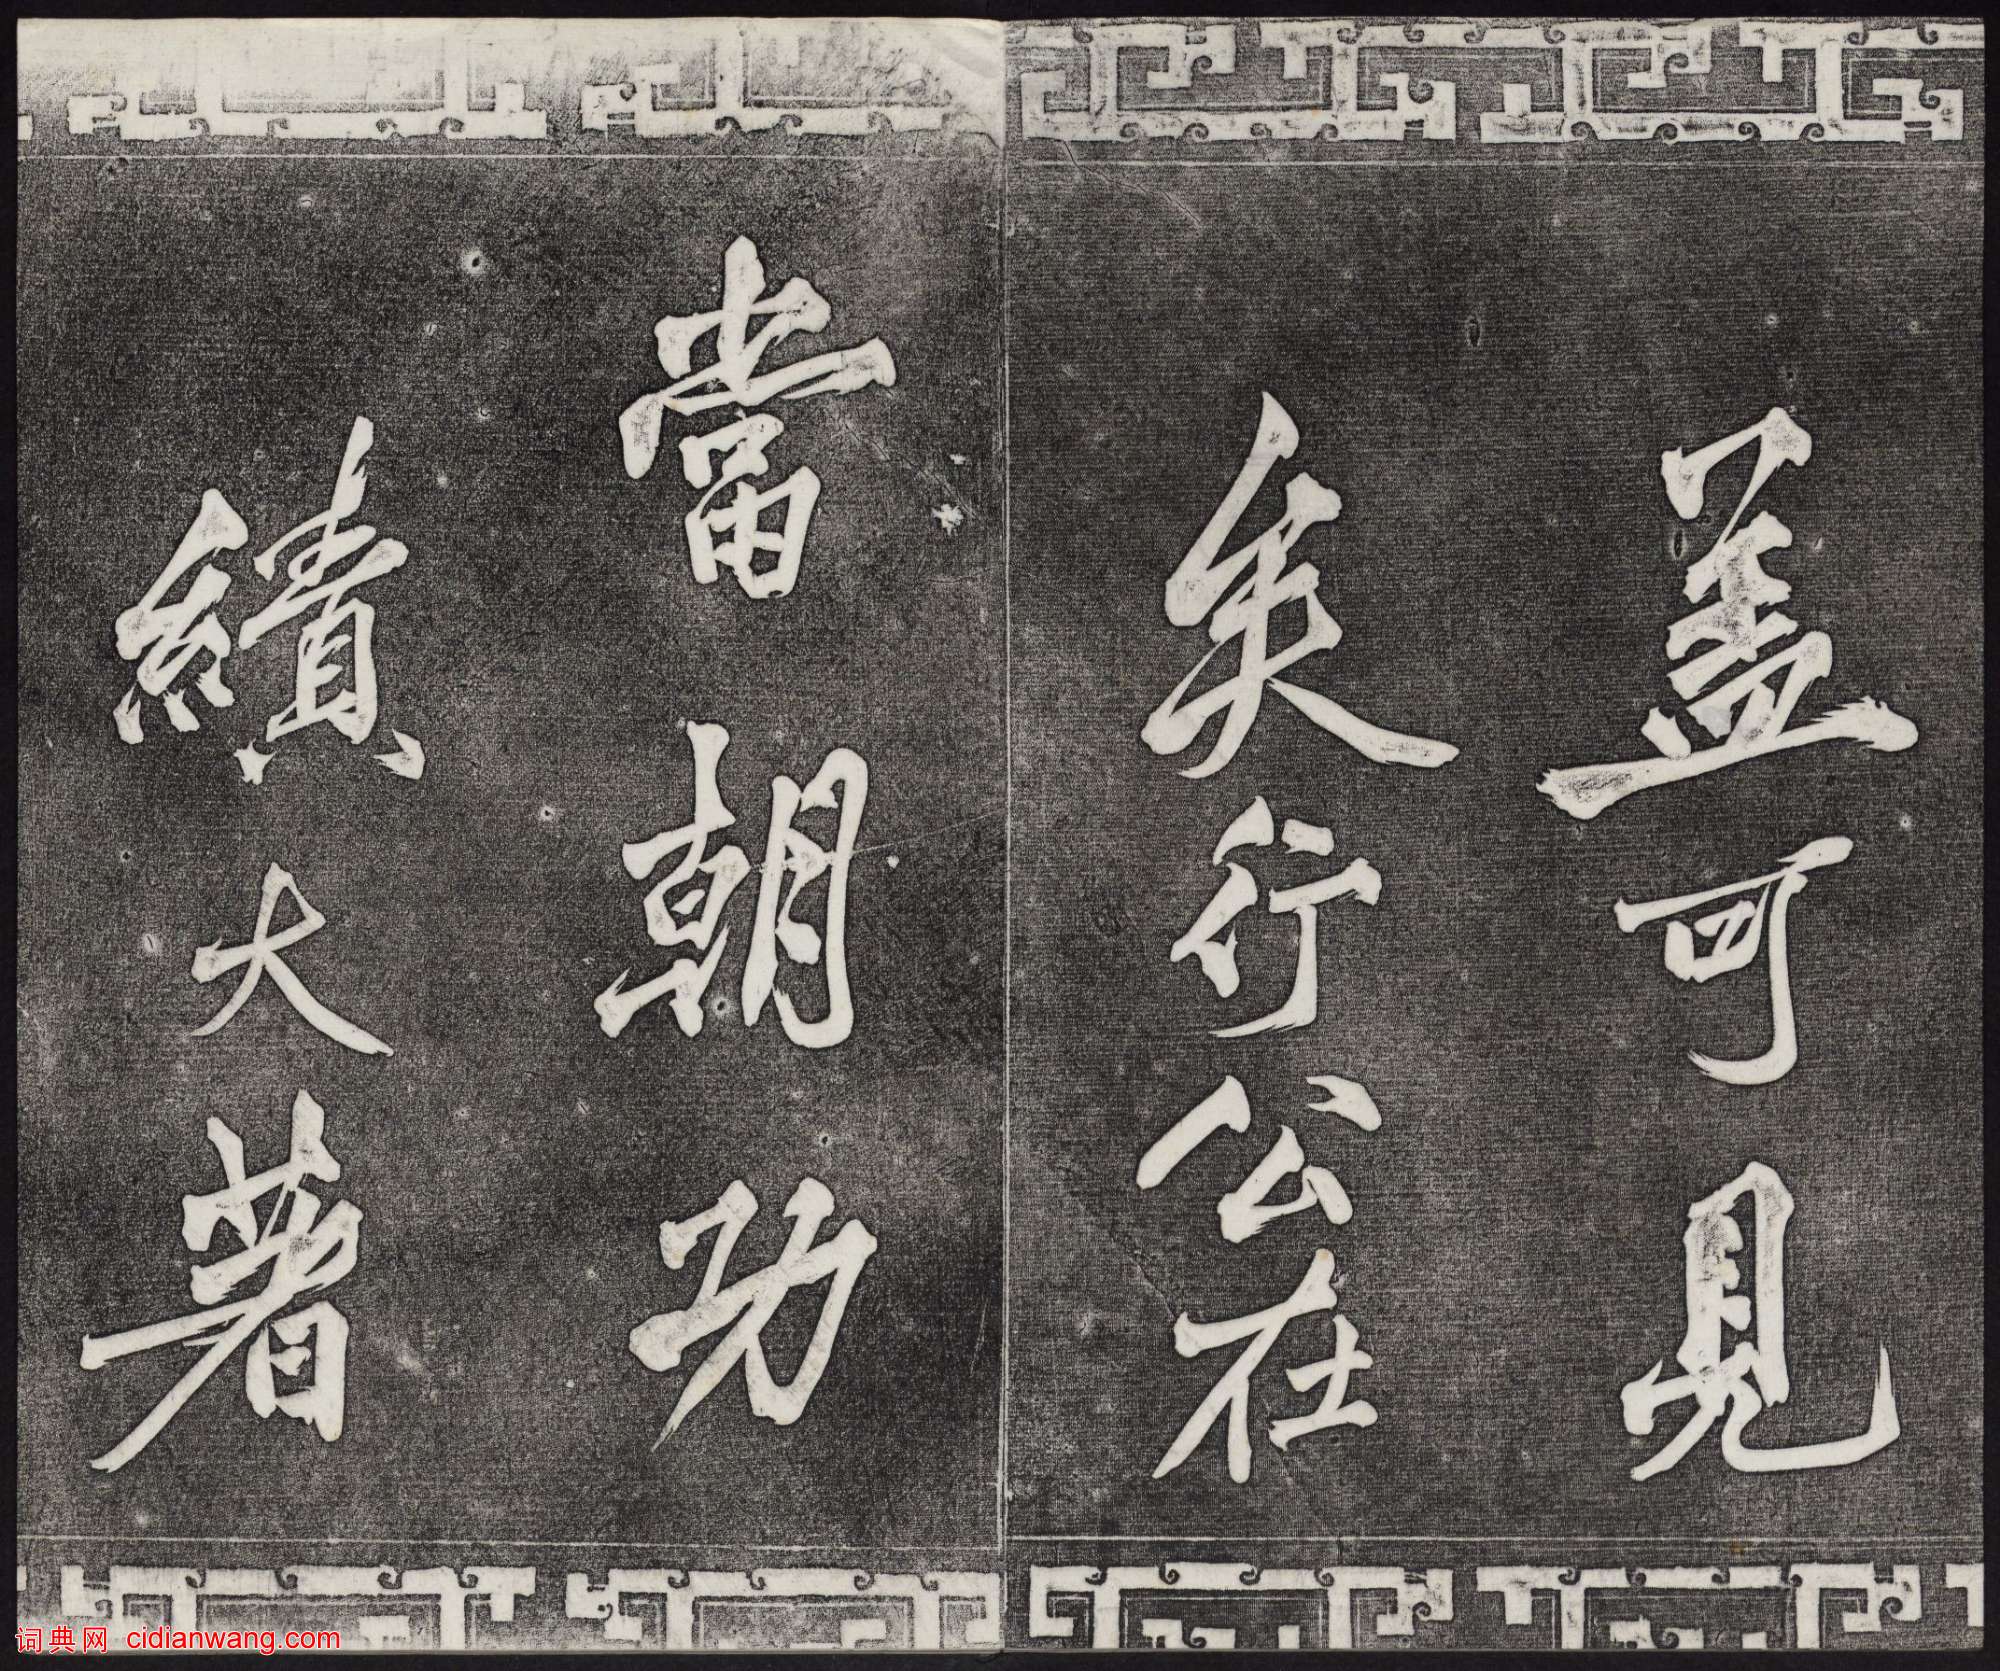 盖可見
矣行公在
當朝功
績大著
词典网 cidianwang.com